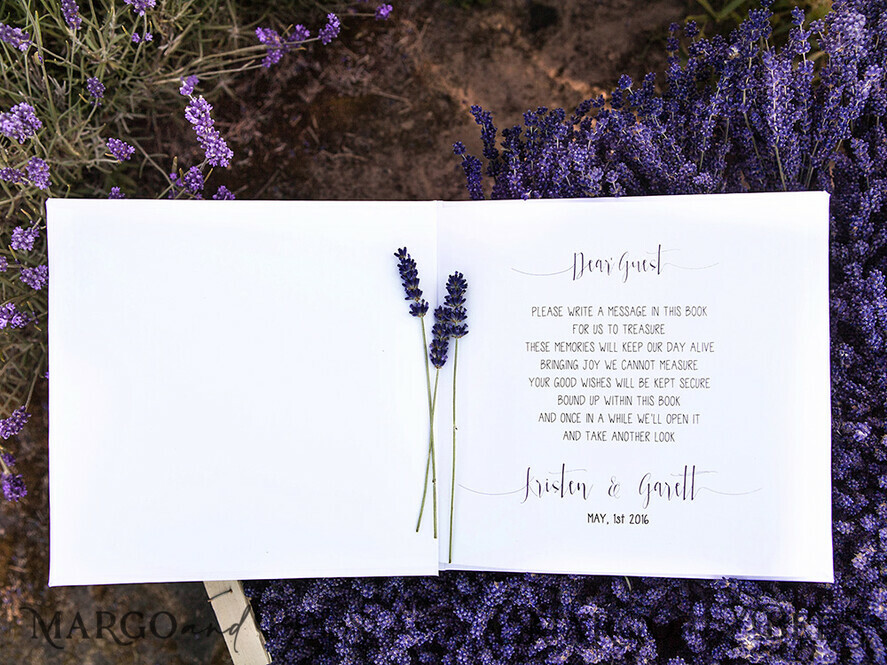 Dear Guest
PLEASE WRITE A MESSAGE IN THIS BOOK
FOR US TO TREASURE
THESE MEMORIES WILL KEEP OUR DAY ALIVE
BRINGING JOY WE CANNOT MEASURE
YOUR GOOD WISHES WILL BE KEPT SECURE
BOUND UP WITHIN THIS BOOK
AND ONCE IN A WHILE WE'LL OPEN IT
AND TAKE ANOTHER LOOK
Kristen & Garett
MAY, 1st 2016
MARGO and